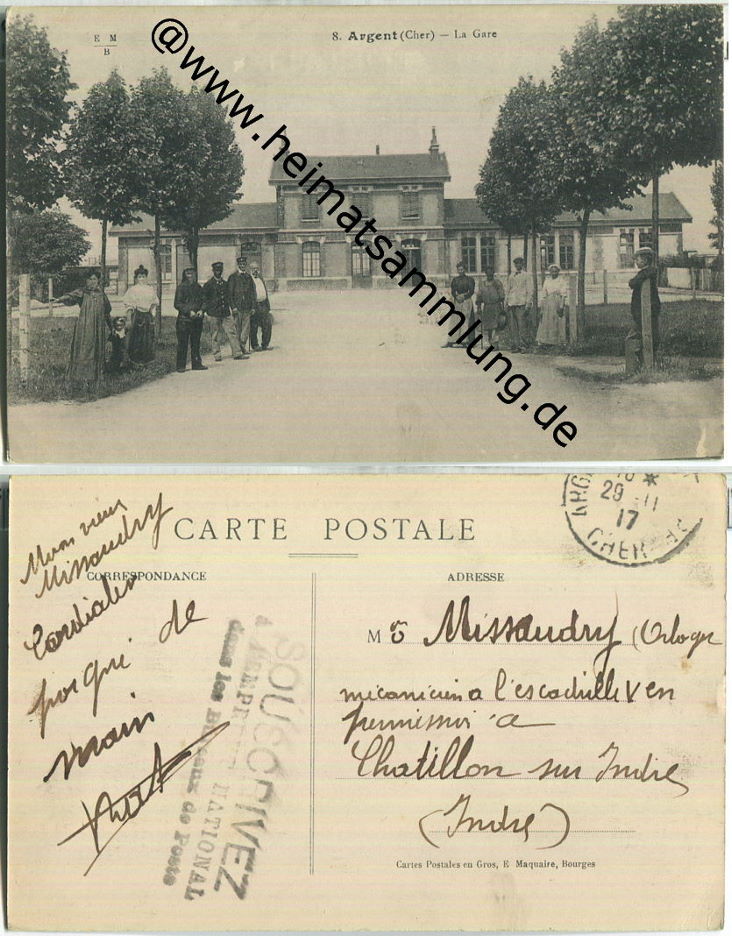 E M
B
8. Argent (Cher) — La Gare
@www.heimatsammlung.de
CARTE POSTALE
CORRESPONDANCE
ADRESSE
Mon vieux
Missaudry
Cordiales
de
main
29 - 11
17
CHER
M Missaudry
mécanicien a l'escadrille V en
a
Chatillon sur Indre
(Indre)
SOUSCRIVEZ
NATIONAL
dans les Bureaux de Poste
Cartes Postales en Gros, E Maquaire, Bourges